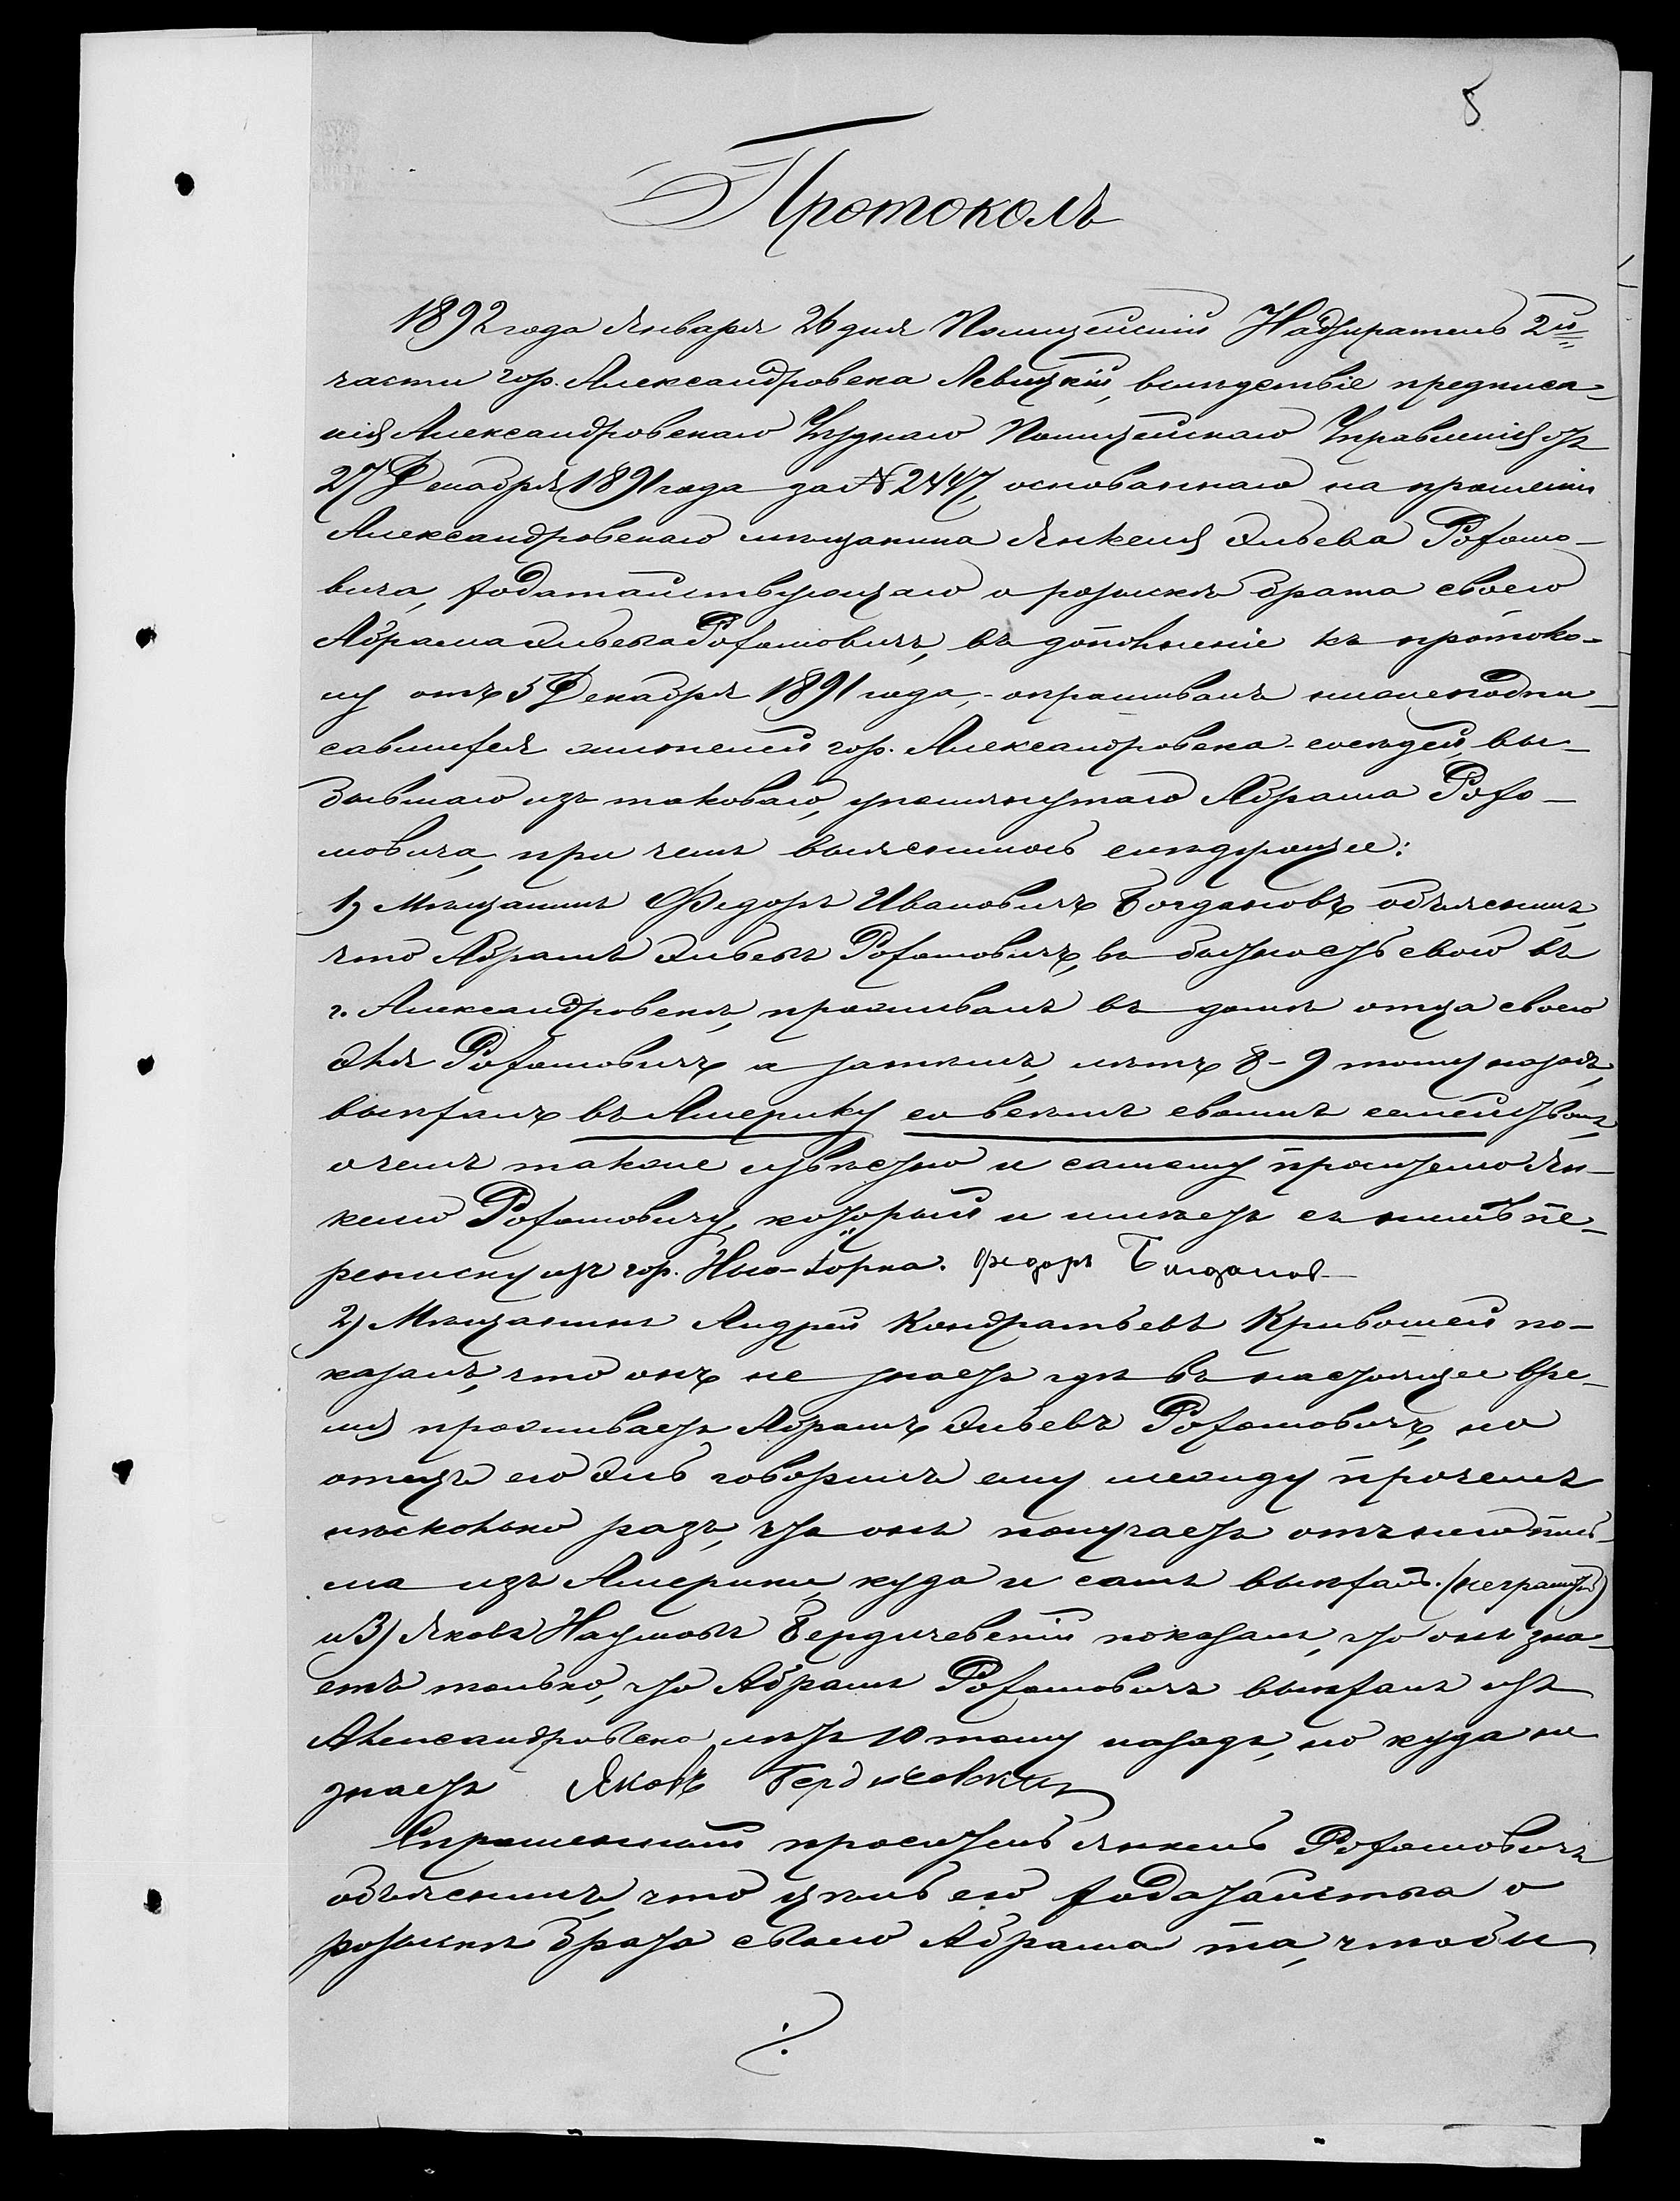 8
Протоколъ
1892 года Января 26 дня Полицейскій Надзиратель 2й
части гор. Александровска Левицкій, вслѣдствіе предписа-
нія Александровскаго Уѣзднаго Полицейскаго Управленія отъ
27 Декабря 1891 года за № 2447, основаннаго на прошеніи
Александровскаго мѣщанина Янкеля Эльева Рохомо-
вича, ходатайствующаго о розыскѣ брата своего
Абрама Эльева Рохомовичъ, въ дополненіе къ протоко-
лу отъ 5 Декабря 1891 года, - опрашивалъ нижеподпи-
савшихся жителей гор. Александровска - сосѣдей, вы-
бывшаго изъ таковаго, упомянутаго Абрама Рохо-
мовича, при чемъ выяснилось слѣдующее:
1) Мѣщанинъ Федоръ Ивановичъ Богдановъ объяснилъ,
что Абрамъ Эльевъ Рохомовичъ, въ бытность свою въ
г. Александровскѣ, проживалъ въ домѣ отца своего
Эля Рохомовичъ а затѣмъ, лѣтъ 8-9 тому назадъ,
выѣхалъ въ Америку со всѣмъ своимъ семействомъ,
о чемъ также извѣстно и самому просителю Ян-
келю Рохомовичу, который и имѣетъ съ нимъ пе-
реписку изъ гор. Нью-Іорка. Федоръ Богданов
2) Мѣщанинъ Андрей Кондратьевъ Кривошей по-
казалъ, что онъ не знаетъ гдѣ въ настоящее вре-
мя проживаетъ Абрамъ Эльевъ Рохомовичъ, но
отецъ его Эль говорилъ ему между прочемъ
нѣсколько разъ, что онъ получаетъ отъ него пись-
ма изъ Америки, куда и самъ выѣхалъ. (неграмотный)
и 3) Яковъ Наумовъ Бердичевскій показалъ, что онъ зна-
етъ только, что Абрамъ Рохомовичъ выѣхалъ изъ
Александровска лѣтъ 10 тому назадъ, но куда не
знаетъ Яковъ Бердичевскій
Спрошенный проситель Янкель Рохомовичъ
объяснилъ, что цѣль его ходатайства о
розыскѣ брата своего Абрама та, чтобы